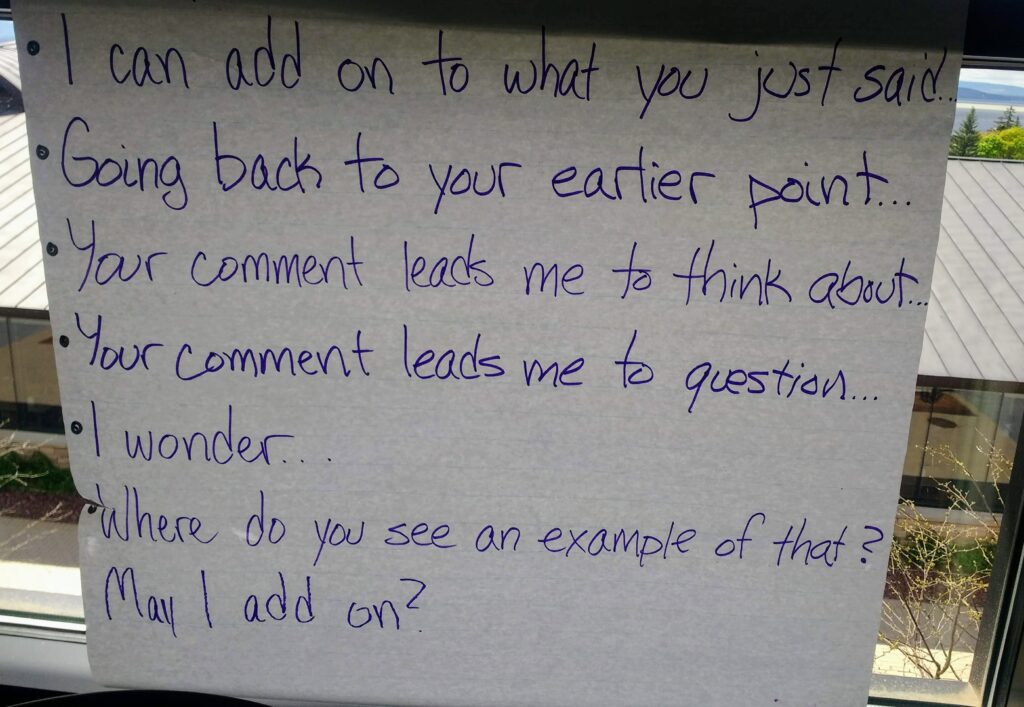 • I can add on to what you just said...
• Going back to your earlier point...
• Your comment leads me to think about...
• Your comment leads me to question...
• I wonder...
• Where do you see an example of that?
May I add on?